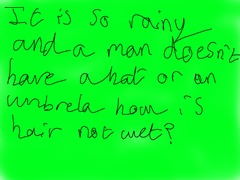 It is so rainy
and a man doesn't
have a hat or an
umbrela how is
hair not wet?